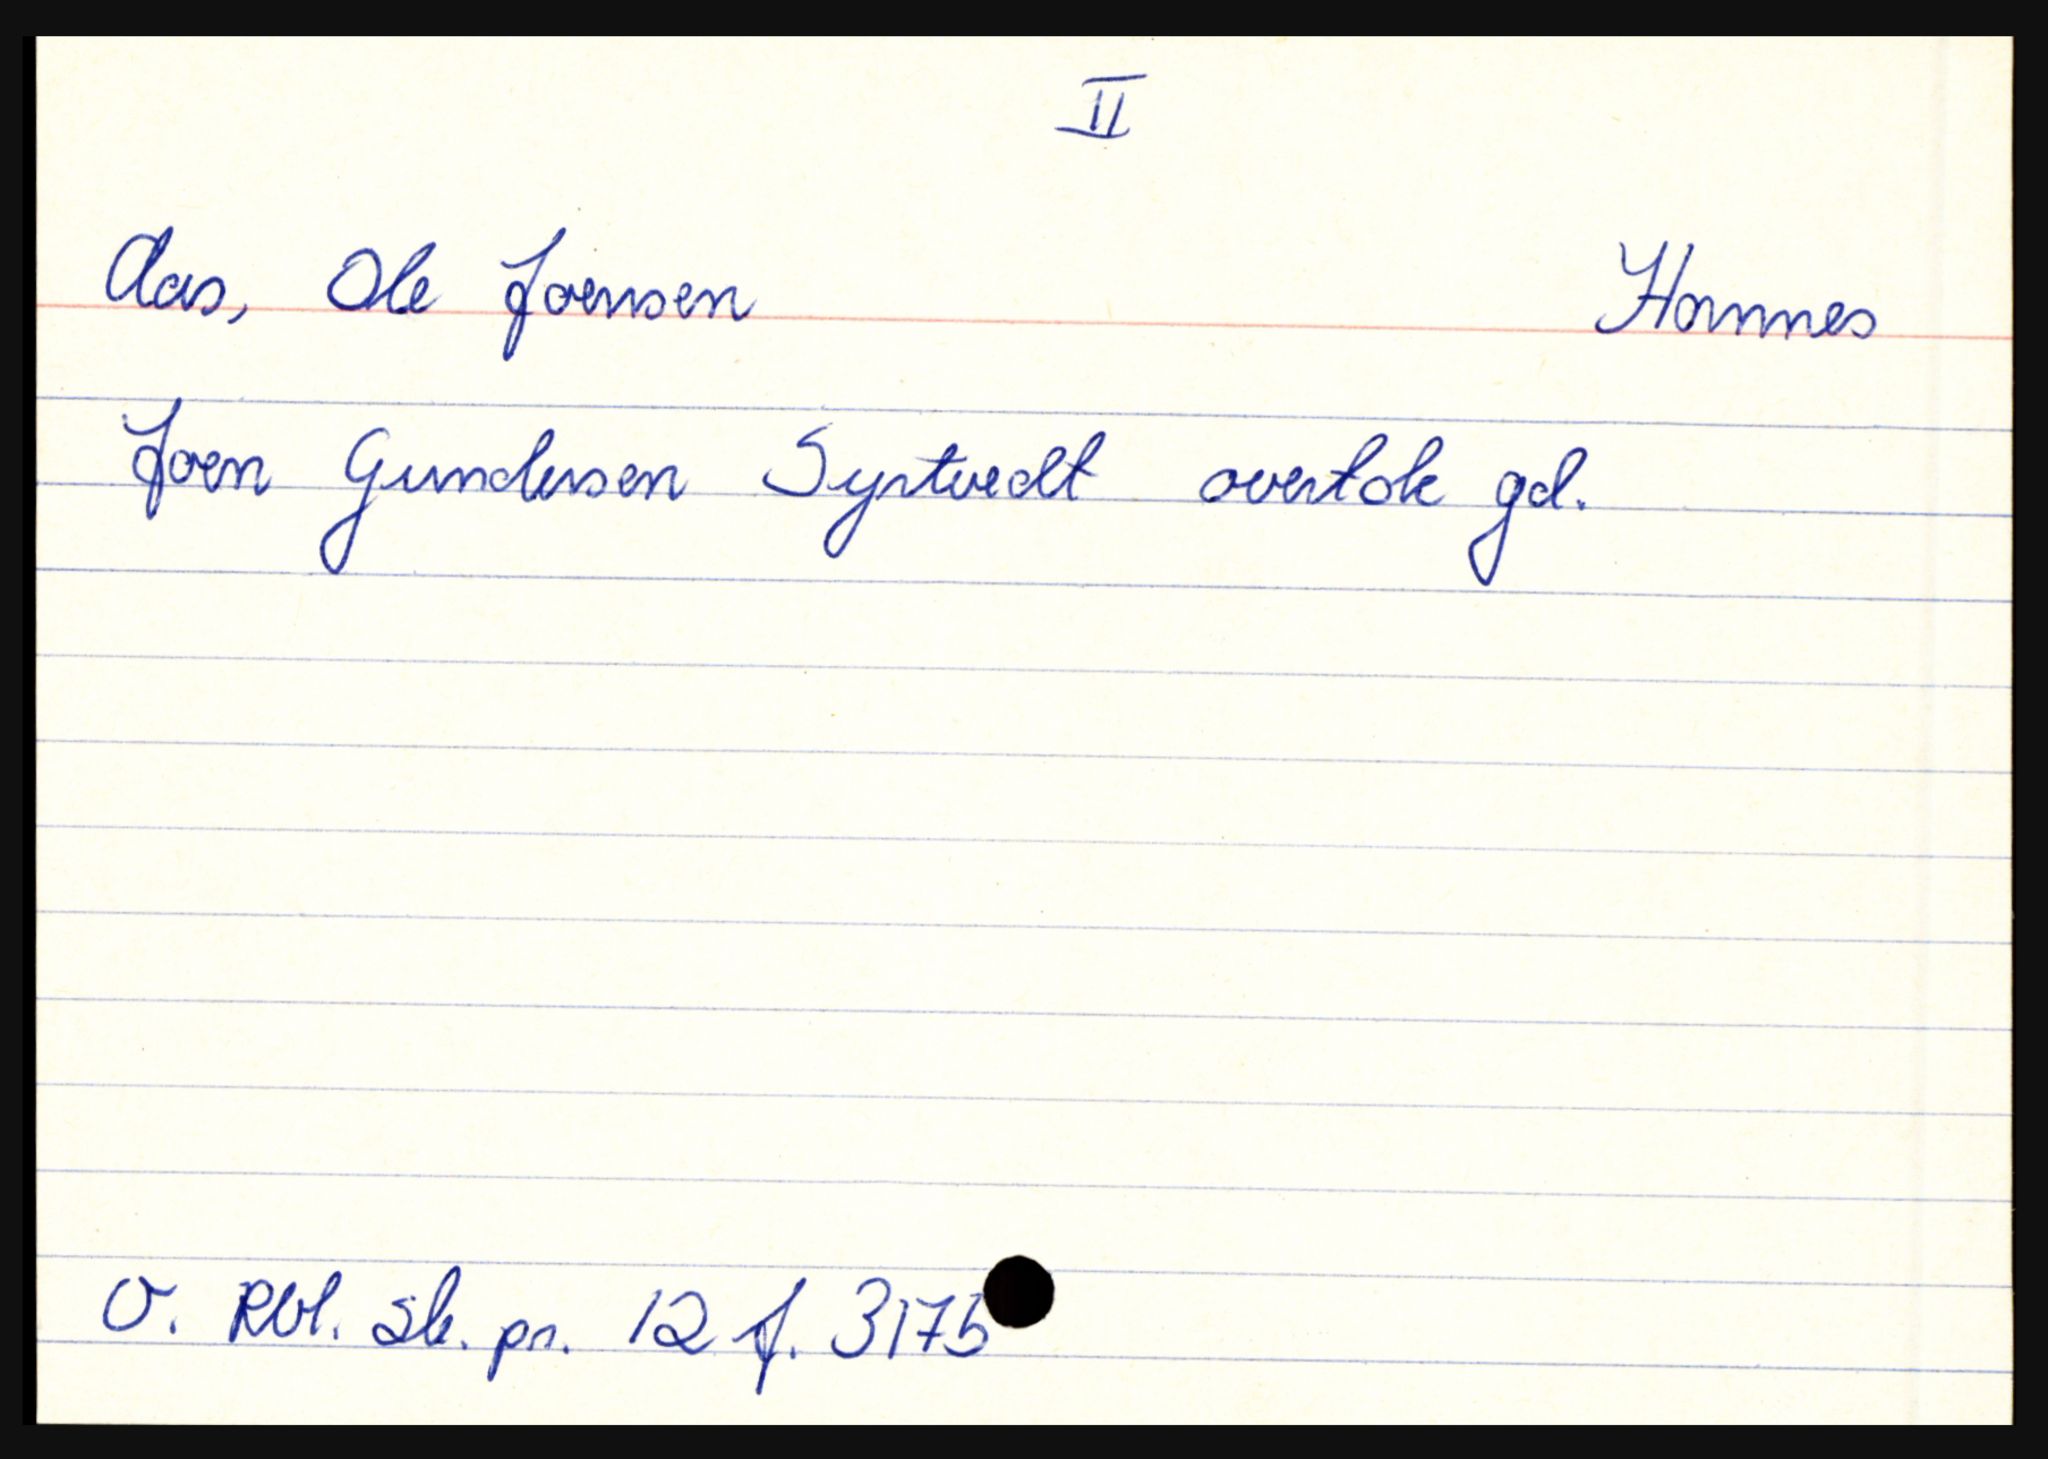 II
Aas, Ole Joensen Hornnes
Joen Gundersen Syrtvedt overtok gd.
O. Rbl. sk. pr. 12 f. 317b